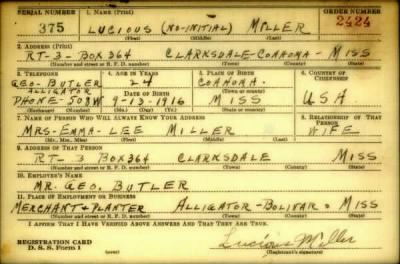 SERIAL NUMBER 1. NAME (Print) ORDER NUMBER
375 LUCIOUS (NO-INITIAL) MILLER 2424
(First) (Middle) (Last)
2. ADDRESS (Print)
RT-3-BOX 364 CLARKSDALE-COAHOMA- MISS
(Number and street or R. F. D. number) (Town) (County) (State)
3. TELEPHONE 4. AGE IN YEARS 5. PLACE OF BIRTH 6. COUNTRY OF CITIZENSHIP
GEO-BUTLER 24 COAHOMA-
ALLIGATOR DATE OF BIRTH (Town or county)
PHONE-508W 9-13-1916 MISS USA
(Exchange) (Number) (Mo.) (Day) (Yr.) (State or country)
7. NAME OF PERSON WHO WILL ALWAYS KNOW YOUR ADDRESS 8. RELATIONSHIP OF THAT PERSON
MRS-EMMA-LEE MILLER WIFE
(Mr., Mrs., Miss) (First) (Middle) (Last)
9. ADDRESS OF THAT PERSON
RT-3 BOX 364 CLARKSDALE MISS
(Number and street or R. F. D. number) (Town) (County) (State)
10. EMPLOYER'S NAME
MR. GEO. BUTLER
11. PLACE OF EMPLOYMENT OR BUSINESS
MERCHANT & PLANTER ALLIGATOR-BOLIVAR- MISS
(Number and street or R. F. D. number) (Town) (County) (State)
I AFFIRM THAT I HAVE VERIFIED ABOVE ANSWERS AND THAT THEY ARE TRUE.
REGISTRATION CARD
D. S. S. Form 1 (over) Lucious Miller
(Registrant's signature)